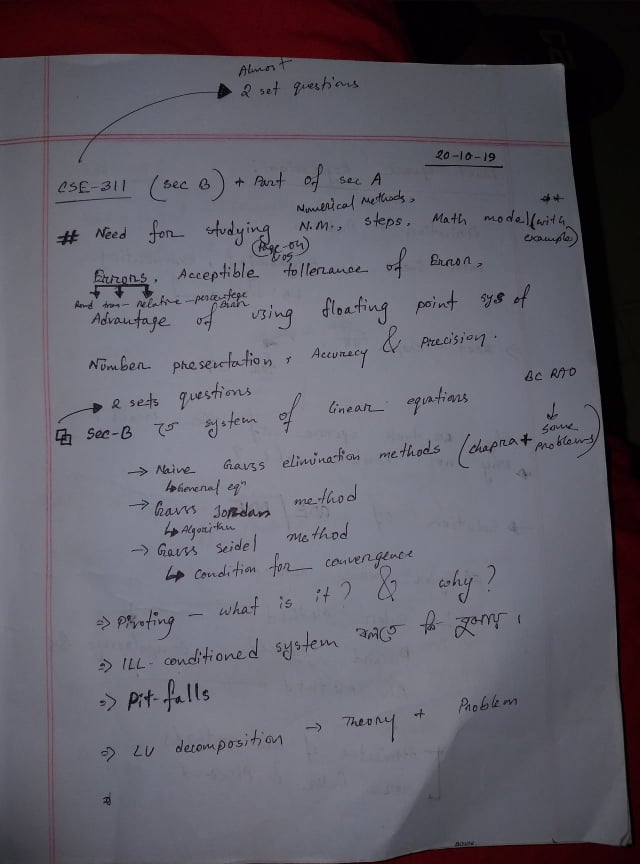 Almost
2 set questions
20-10-19
CSE-311 (sec B) + Part of sec A
Numerical Methods,
# Need for studying N.M., steps, Math model (with example)
**
Page-04
Errors, Acceptible tollerance of Error,
Round trun- Relative - percentage
Error
Advantage of using floating point sys of
Number presentation, Accuracy & Precision.
2 sets questions
BC RAO
Sec-B তে system of linear equations
→ Naive Gauss elimination methods (chapra + some problems)
↳ General eqn
→ Gauss Jordan method
↳ Algorithm
→ Gauss Seidel Method
↳ condition for convergence
⇒ Pivoting - what is it? & why?
⇒ ILL-conditioned system বলতে কি বুঝায়।
⇒ Pit-falls
⇒ LU decomposition → Theory + Problem